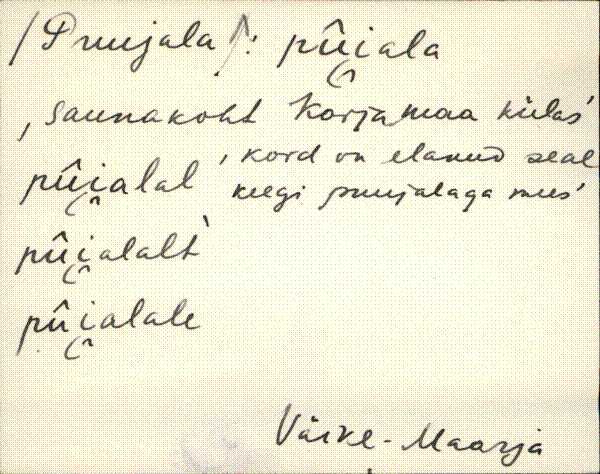 /Puujala/: pûi̯ala
‚saunakoht Korjamaa külas’
pûi̯alal ‚kord on elanud seal
keegi puujalaga mees’
pûi̯alalt̀
pûi̯alale
Väike-Maarja